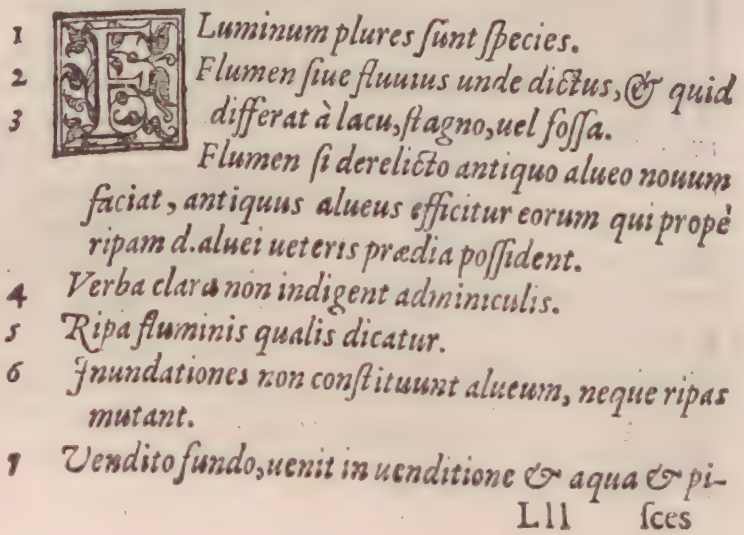 1 FLuminum plures ſunt ſpecies.
2 Flumen ſiue fluuius unde dictus, & quid
3 differat à lacu, ſtagno, uel foſſa.
Flumen ſi derelicto antiquo alueo nouum
faciat, antiquus alueus efficitur eorum qui propè
ripam d. aluei ueteris prædia poſſident.
4 Verba clara non indigent adminiculis.
5 Ripa fluminis qualis dicatur.
6 Inundationes non conſtituunt alueum, neque ripas
mutant.
7 Vendito fundo, uenit in uenditione & aqua & pi-
Lll ſces